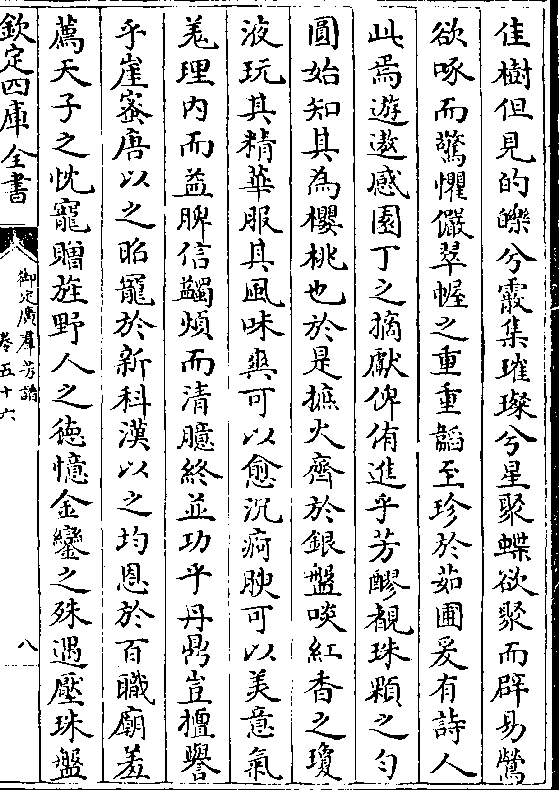 佳樹但見的皪兮霰集璀璨兮星聚蝶欲聚而辟易鶯
欲啄而驚懼儼翠幄之重重韜至珍於茹圃爰有詩人
此焉遊遨感園丁之摘獻俾侑進乎芳醪覩珠顆之勻
圓始知其為櫻桃也於是摭火齊於銀盤啖紅香之瓊
液玩其精華服其風味爽可以愈沉疴腴可以美意氣
羗理内而益脾信蠲煩而清臆終並功乎丹鼎豈擅譽
乎崖蜜唐以之昭寵於新科漢以之均恩於百職廟羞
薦天子之忱寵贈旌野人之徳憶金鑾之殊遇壓珠盤
欽定四庫全書
御定廣羣芳譜
卷五十六
八